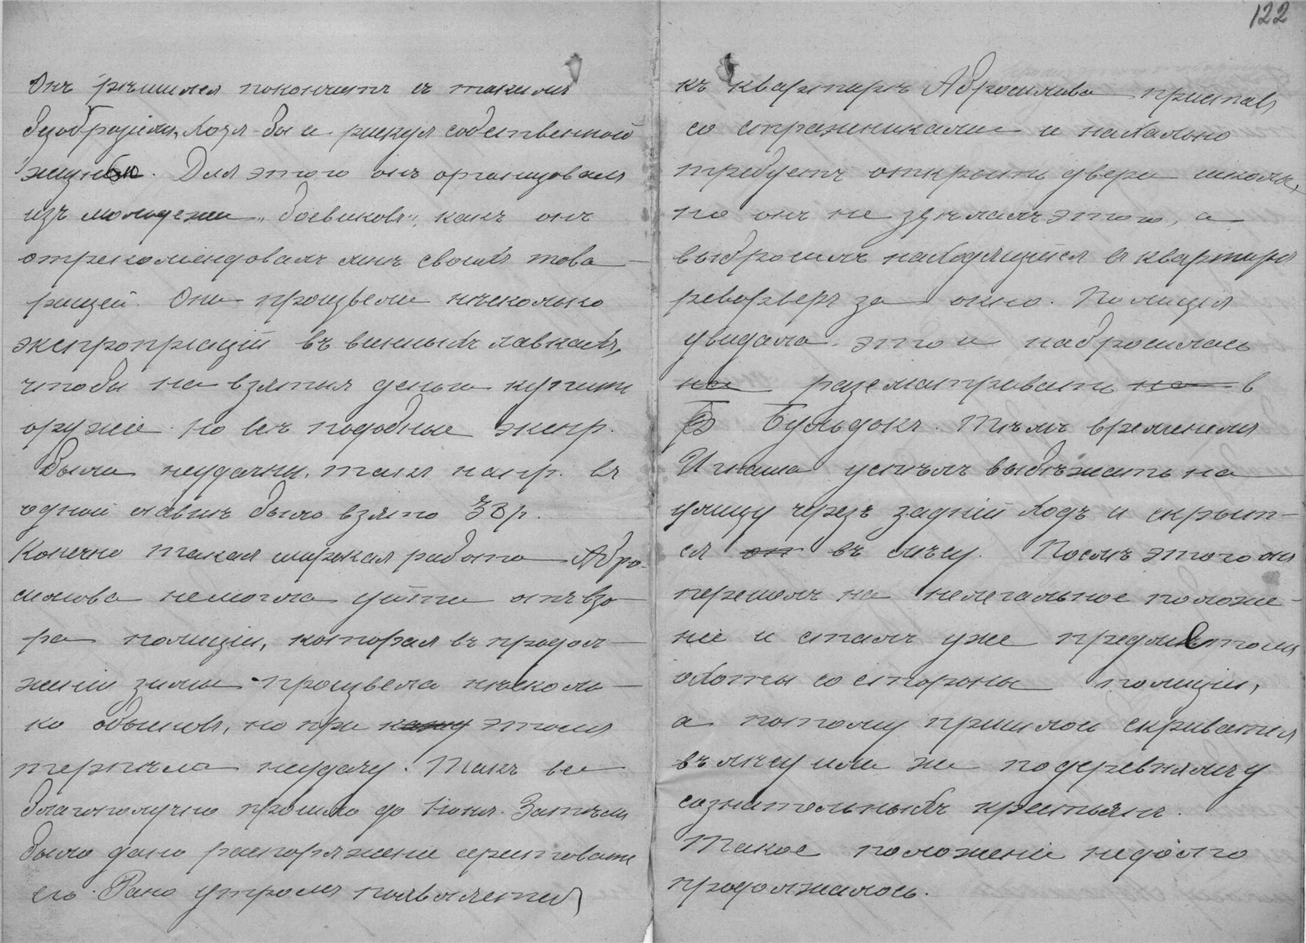 Онъ рѣшился покончить съ такимъ
безобразіемъ, хотя-бы и рискуя собственной
жизнью. Для этого онъ организовалъ
изъ молодежи „боевиковъ", какъ онъ
отрекомендовалъ мнѣ своихъ това-
рищей. Они произвели нѣсколько
экспропріацій въ винныхъ лавкахъ,
чтобы на взятыя деньги купить
оружіе. но всѣ подобные экспр.
были неудачны. такъ напр. въ
одной лавкѣ было взято 33р.
Конечно такая широкая работа Абро-
симова немогла уйти отъ взо-
ра полиціи, которая въ продол-
женіи зимы произвела нѣсколь-
ко обысковъ, но при этомъ
терпѣла неудачу. Такъ все
благополучно прошло до Іюня. Затѣмъ
было дано распоряженіе арестовать
его. Рано утромъ появляется
122
къ квартирѣ Абросимова приставъ
со стражниками и нахально
требуетъ открыть двери школы,
но онъ не сдѣлалъ этого, а
выбросилъ находящійся в квартирѣ
револьверъ за окно. Полиція
увидала это и набросилась
на разсматривать на в
Бульдокъ. Тѣмъ временемъ
Игнаша успѣлъ выбѣжать на
улицу черезъ задній ходъ и скрыт-
ся он въ лѣсу. Послѣ этого онъ
перешолъ на нелегальное положе-
ніе и сталъ уже предметомъ
охоты со стороны полиціи,
а потому пришлось скриватся
въ лѣсу или же подеревнямъ у
сознательныхъ крестьянъ.
Такое положеніе недолго
продолжалось.